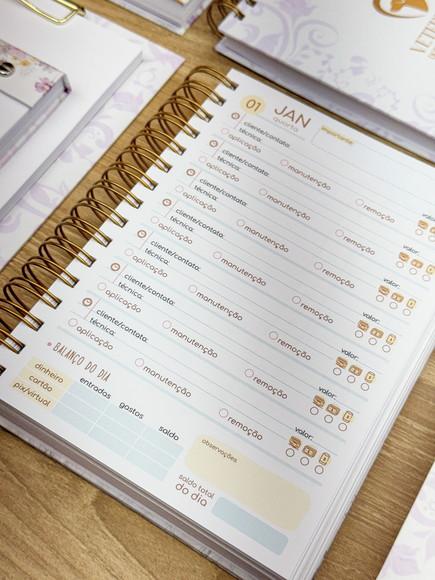 01 JAN
quarta
importante:
cliente/contato:
técnica:
aplicação manutenção remoção
valor:
cliente/contato:
técnica:
aplicação manutenção remoção
valor:
cliente/contato:
técnica:
aplicação manutenção remoção
valor:
cliente/contato:
técnica:
aplicação manutenção remoção
valor:
cliente/contato:
técnica:
aplicação manutenção remoção
valor:
cliente/contato:
técnica:
aplicação manutenção remoção
valor:
BALANÇO DO DIA
entradas gastos saldo
dinheiro
cartão
pix/virtual
observações
saldo total
do dia